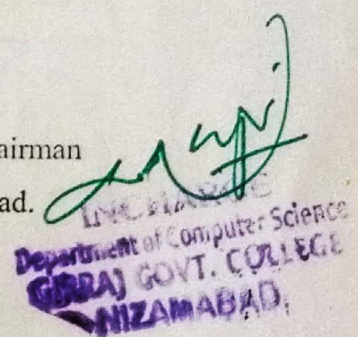 airman
ad.
INCHARGE
Department of Computer Science
GIRRAJ GOVT. COLLEGE
NIZAMABAD.